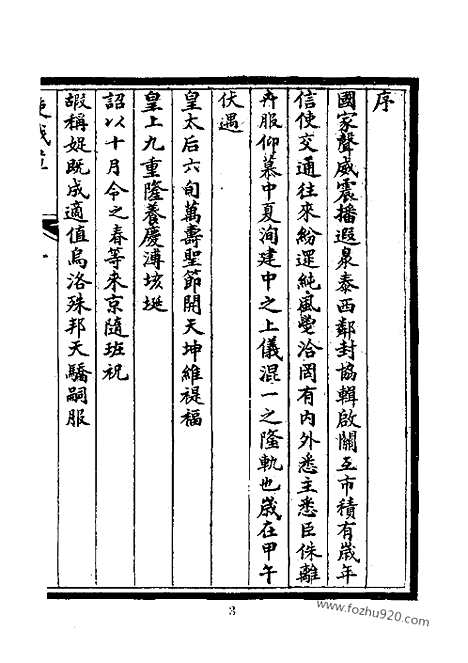 序
國家聲威震播遐泉泰西鄰封協輯啟關互市積有歲年
信使交通往來紛遝純風燮洽罔有內外悉主悉臣侏離
卉服仰慕中夏洵建中之上儀混一之隆軌也歲在甲午
伏遇
皇太后六旬萬壽聖節開天坤維禔福
皇上九重隆養慶溥垓埏
詔以十月令之春等來京隨班祝
嘏稱娖既成適值烏洛殊邦天驕嗣服
3
www.fozhu920.com